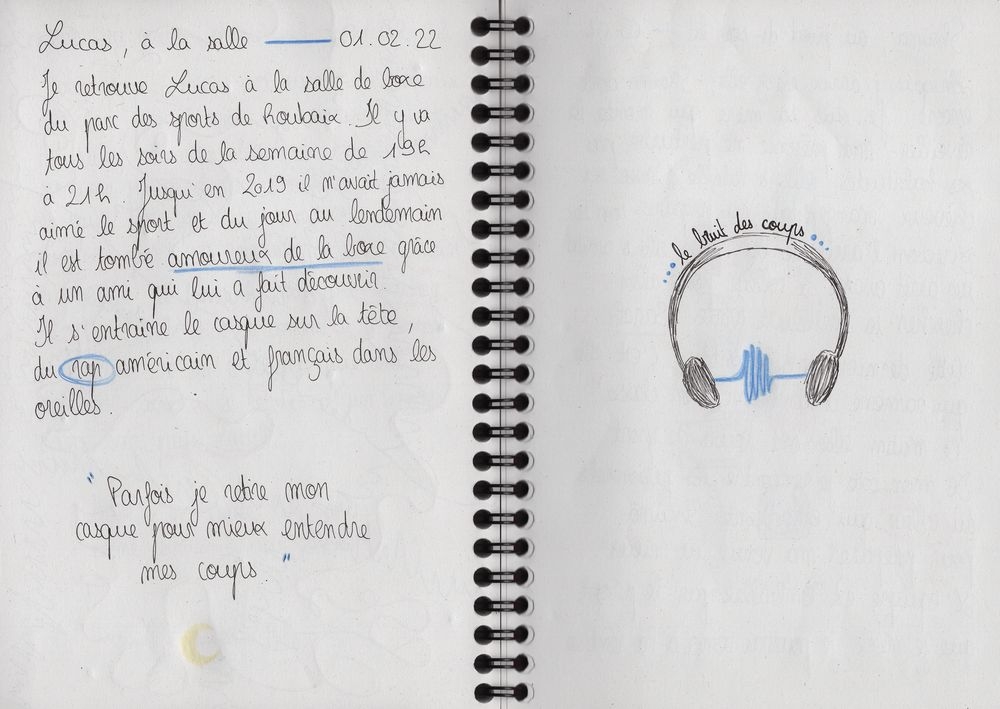 Lucas, à la salle — 01.02.22
Je retrouve Lucas à la salle de boxe
du parc des sports de Roubaix. Il y va
tous les soirs de la semaine de 19h
à 21h. Jusqu'en 2019 il n'avait jamais
aimé le sport et du jour au lendemain
il est tombé amoureux de la boxe grâce
à un ami qui lui a fait découvrir.
Il s'entraine le casque sur la tête,
du rap américain et français dans les
oreilles.
"Parfois je retire mon
casque pour mieux entendre
mes coups."
...le bruit des coups...